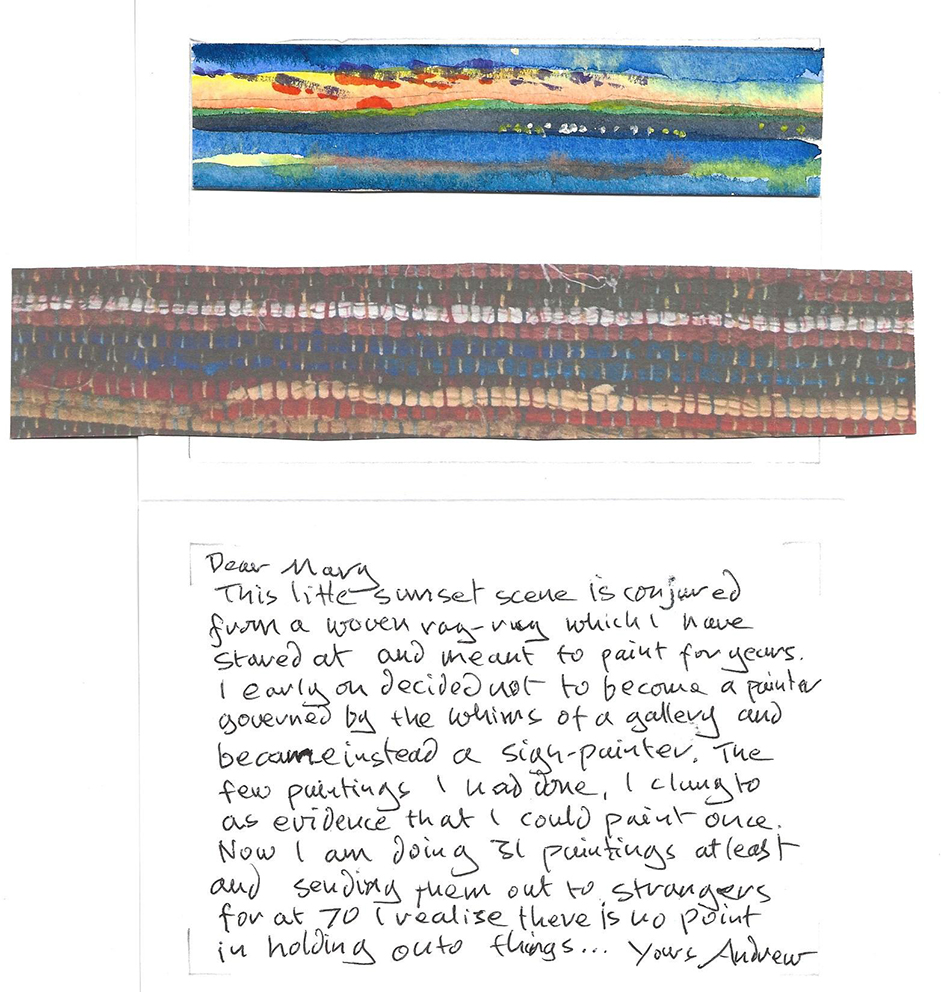 Dear Mary
This little sunset scene is conjured
from a woven rag-rug which I have
stared at and meant to paint for years.
I early on decided not to become a painter
governed by the whims of a gallery and
became instead a sign-painter. The
few paintings I had done, I clung to
as evidence that I could paint once.
Now I am doing 31 paintings at least
and sending them out to strangers
for at 70 I realise there is no point
in holding onto things... Yours Andrew